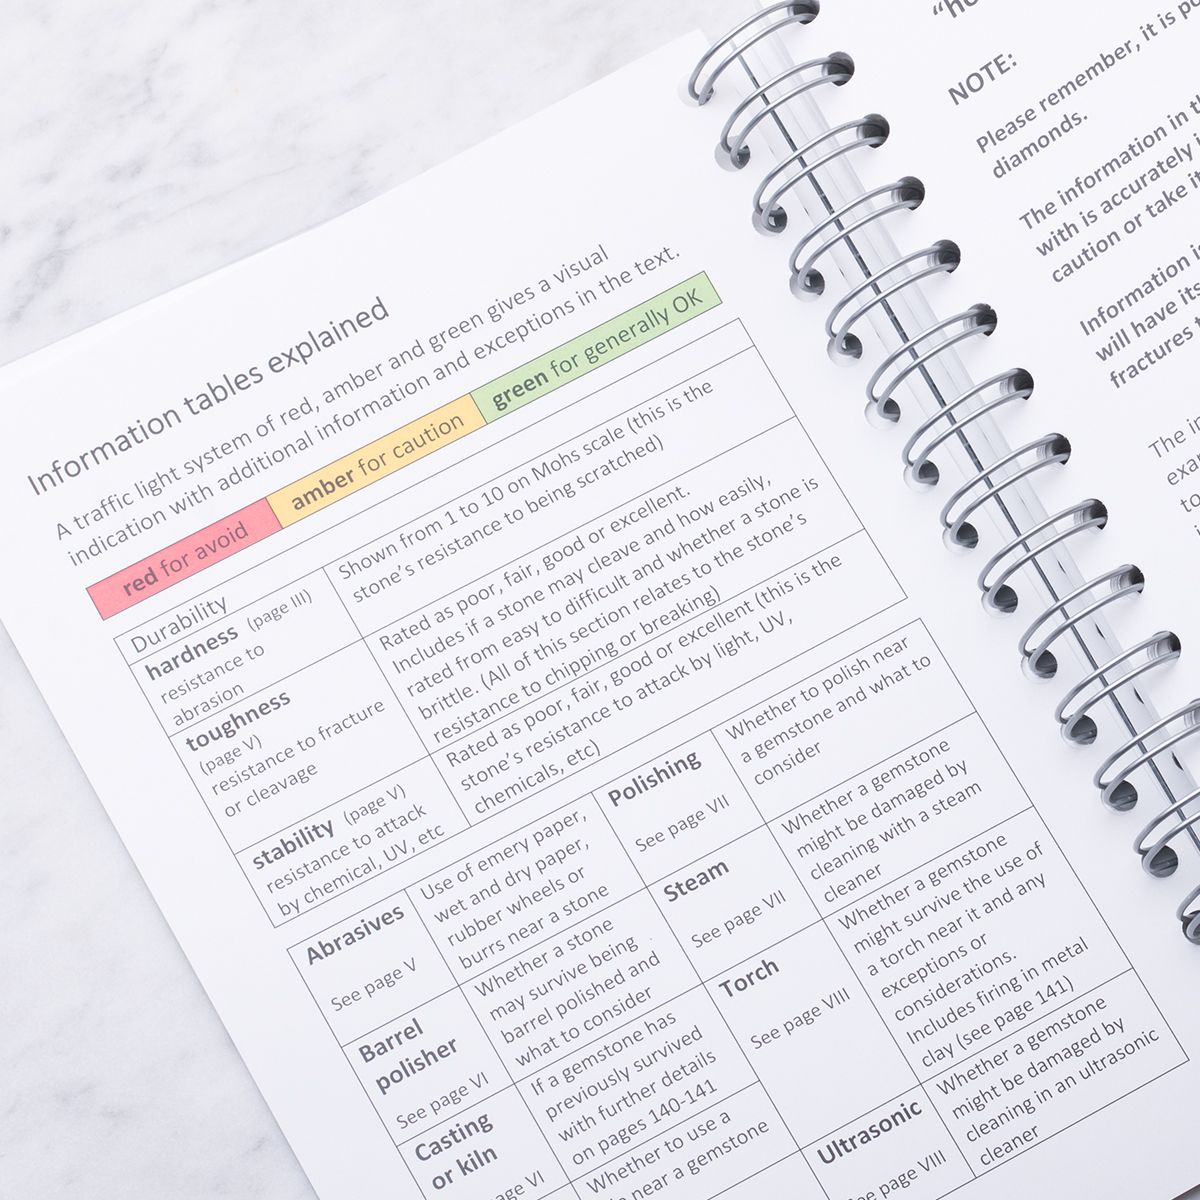 Information tables explained
A traffic light system of red, amber and green gives a visual
indication with additional information and exceptions in the text.
red for avoid
amber for caution
green for generally OK
Durability
hardness (page III)
resistance to
abrasion
Shown from 1 to 10 on Mohs scale (this is the
stone's resistance to being scratched)
toughness
(page V)
resistance to fracture
or cleavage
Rated as poor, fair, good or excellent.
Includes if a stone may cleave and how easily,
rated from easy to difficult and whether a stone is
brittle. (All of this section relates to the stone's
resistance to chipping or breaking)
stability (page V)
resistance to attack
by chemical, UV, etc
Rated as poor, fair, good or excellent (this is the
stone's resistance to attack by light, UV,
chemicals, etc)
Abrasives
See page V
Use of emery paper,
wet and dry paper,
rubber wheels or
burrs near a stone
Barrel
polisher
See page VI
Whether a stone
may survive being
barrel polished and
what to consider
Casting
or kiln
If a gemstone has
previously survived
with further details
on pages 140-141
Whether to use a
near a gemstone
Polishing
See page VII
Whether to polish near
a gemstone and what to
consider
Steam
See page VII
Whether a gemstone
might be damaged by
cleaning with a steam
cleaner
Torch
See page VIII
Whether a gemstone
might survive the use of
a torch near it and any
exceptions or
considerations.
Includes firing in metal
clay (see page 141)
Ultrasonic
page VIII
Whether a gemstone
might be damaged by
cleaning in an ultrasonic
cleaner
NOTE:
Please remember, it is
diamonds.
The information in
with is accurately
caution or take it
Information
will have its
fractures
The
to